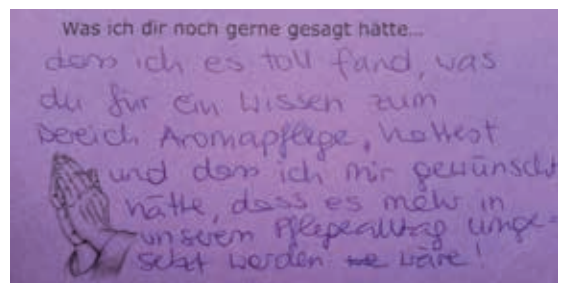 Was ich dir noch gerne gesagt hätte...
dass ich es toll fand, was
du für ein Wissen zum
Bereich Aromapflege, hattest
und dass ich mir gewünscht
hätte, dass es mehr in
unserem Pflegealltag umge=
setzt worden wäre!